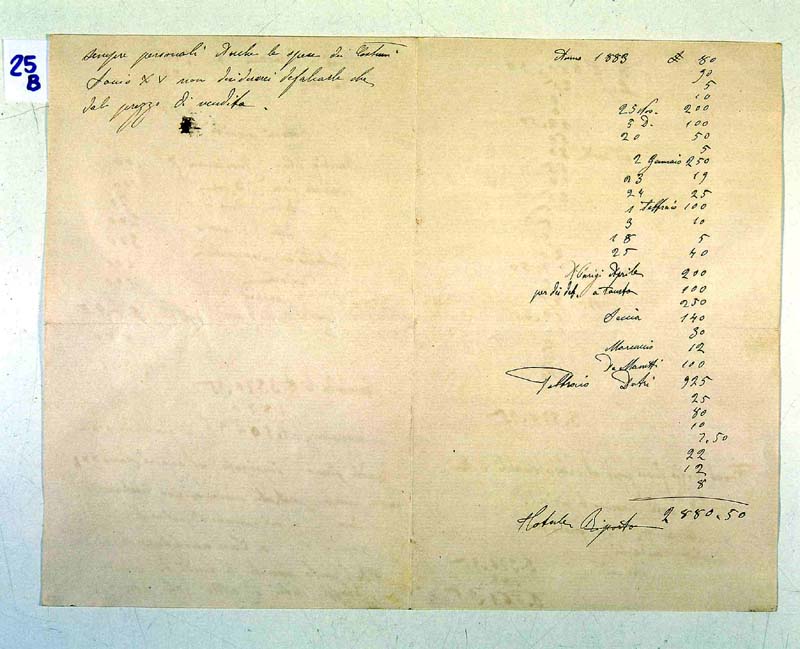 25
B
sempre personali Anche le spese dei Costumi
non defalcarle che
dal prezzo di vendita.
Anno 1883 £ 80
90
5
10
25 Nov. 200
5 D. 100
20 50
5
2 Gennaio 250
23 19
24 25
1 Febbraio 100
3 10
18 5
25 40
Parigi Aprile 200
per dei a Fausta 100
250
140
30
12
100
Febbraio 925
25
80
10
7.50
22
12
8
Totale Riporto 2880.50